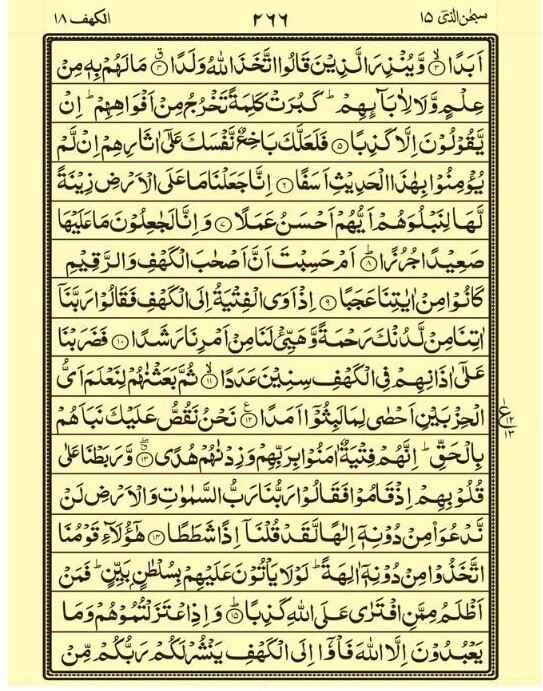 سبحٰن الذی ۱۵ ۲۶۶ الکهف ۱۸
اَبَدًا ۙ﴿۳﴾ وَّیُنْذِرَ الَّذِیْنَ قَالُوا اتَّخَذَ اللّٰهُ وَلَدًا ۗ﴿۴﴾ مَا لَهُمْ بِهٖ مِنْ
عِلْمٍ وَّلَا لِاٰبَآىِٕهِمْ ؕ كَبُرَتْ كَلِمَةً تَخْرُجُ مِنْ اَفْوَاهِهِمْ ؕ اِنْ
یَّقُوْلُوْنَ اِلَّا كَذِبًا ﴿۵﴾ فَلَعَلَّكَ بَاخِعٌ نَّفْسَكَ عَلٰۤی اٰثَارِهِمْ اِنْ لَّمْ
یُؤْمِنُوْا بِهٰذَا الْحَدِیْثِ اَسَفًا ﴿۶﴾ اِنَّا جَعَلْنَا مَا عَلَی الْاَرْضِ زِیْنَةً
لَّهَا لِنَبْلُوَهُمْ اَیُّهُمْ اَحْسَنُ عَمَلًا ﴿۷﴾ وَاِنَّا لَجٰعِلُوْنَ مَا عَلَیْهَا
صَعِیْدًا جُرُزًا ؕ﴿۸﴾ اَمْ حَسِبْتَ اَنَّ اَصْحٰبَ الْكَهْفِ وَالرَّقِیْمِ
كَانُوْا مِنْ اٰیٰتِنَا عَجَبًا ﴿۹﴾ اِذْ اَوَی الْفِتْیَةُ اِلَی الْكَهْفِ فَقَالُوْا رَبَّنَاۤ
اٰتِنَا مِنْ لَّدُنْكَ رَحْمَةً وَّهَیِّئْ لَنَا مِنْ اَمْرِنَا رَشَدًا ﴿۱۰﴾ فَضَرَبْنَا
عَلٰۤی اٰذَانِهِمْ فِی الْكَهْفِ سِنِیْنَ عَدَدًا ۙ﴿۱۱﴾ ثُمَّ بَعَثْنٰهُمْ لِنَعْلَمَ اَیُّ
الْحِزْبَیْنِ اَحْصٰی لِمَا لَبِثُوْۤا اَمَدًا ﴿۱۲﴾ نَحْنُ نَقُصُّ عَلَیْكَ نَبَاَهُمْ
بِالْحَقِّ ؕ اِنَّهُمْ فِتْیَةٌ اٰمَنُوْا بِرَبِّهِمْ وَزِدْنٰهُمْ هُدًی ﴿۱۳﴾ وَّرَبَطْنَا عَلٰی
قُلُوْبِهِمْ اِذْ قَامُوْا فَقَالُوْا رَبُّنَا رَبُّ السَّمٰوٰتِ وَالْاَرْضِ لَنْ
نَّدْعُوَا۟ مِنْ دُوْنِهٖۤ اِلٰهًا لَّقَدْ قُلْنَاۤ اِذًا شَطَطًا ﴿۱۴﴾ هٰۤؤُلَآءِ قَوْمُنَا
اتَّخَذُوْا مِنْ دُوْنِهٖۤ اٰلِهَةً ؕ لَوْلَا یَاْتُوْنَ عَلَیْهِمْ بِسُلْطٰنٍۭ بَیِّنٍ ؕ فَمَنْ
اَظْلَمُ مِمَّنِ افْتَرٰی عَلَی اللّٰهِ كَذِبًا ؕ﴿۱۵﴾ وَاِذِ اعْتَزَلْتُمُوْهُمْ وَمَا
یَعْبُدُوْنَ اِلَّا اللّٰهَ فَاْوٗۤا اِلَی الْكَهْفِ یَنْشُرْ لَكُمْ رَبُّكُمْ مِّنْ